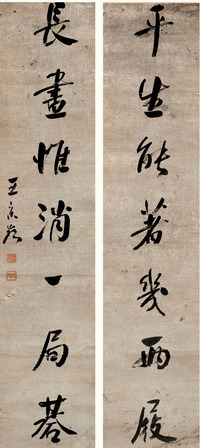 平生能著幾兩屐
長晝惟消一局碁
王